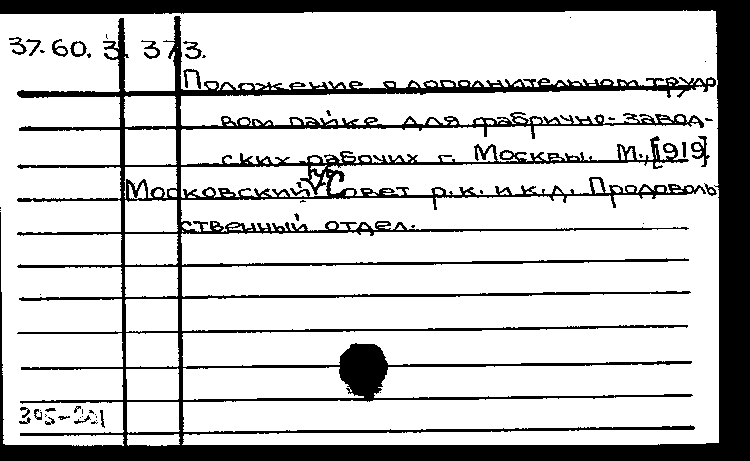 37.60.3. 373.
Положение о дополнительном трудо
вом пайке для фабрично-завод-
ских рабочих г. Москвы. М., [1919].
Московский Совет р.к. и к.д. Продоволь
ственный отдел.
305-201